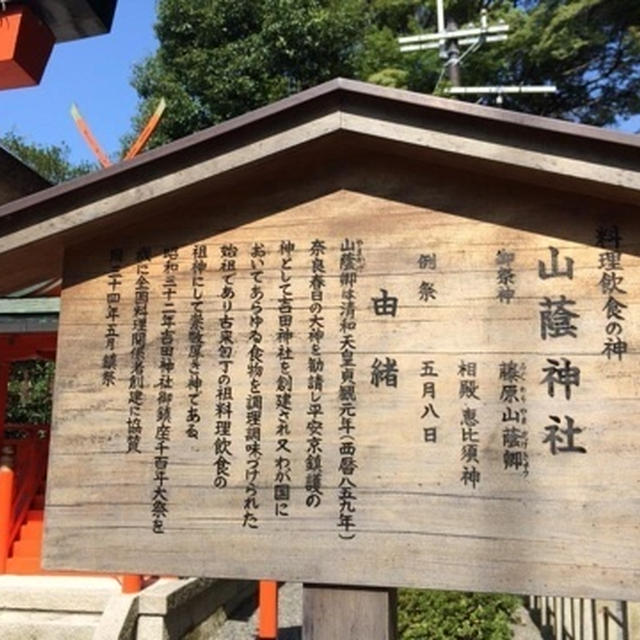 料理飲食の神
山蔭神社
御祭神 藤原山蔭卿
相殿 恵比須神
例祭 五月八日
由緒
山蔭卿は清和天皇貞観元年(西暦八五九年)
奈良春日の大神を勧請し平安京鎮護の
神として吉田神社を創建され又わが国に
おいてあらゆる食物を調理調味づけられた
始祖であり古来包丁の祖料理飲食の
祖神にして崇敬厚き神である、
昭和三十二年吉田神社御鎮座千百年大祭を
機に全国料理関係者創建に協賛
同三十四年五月鎮祭